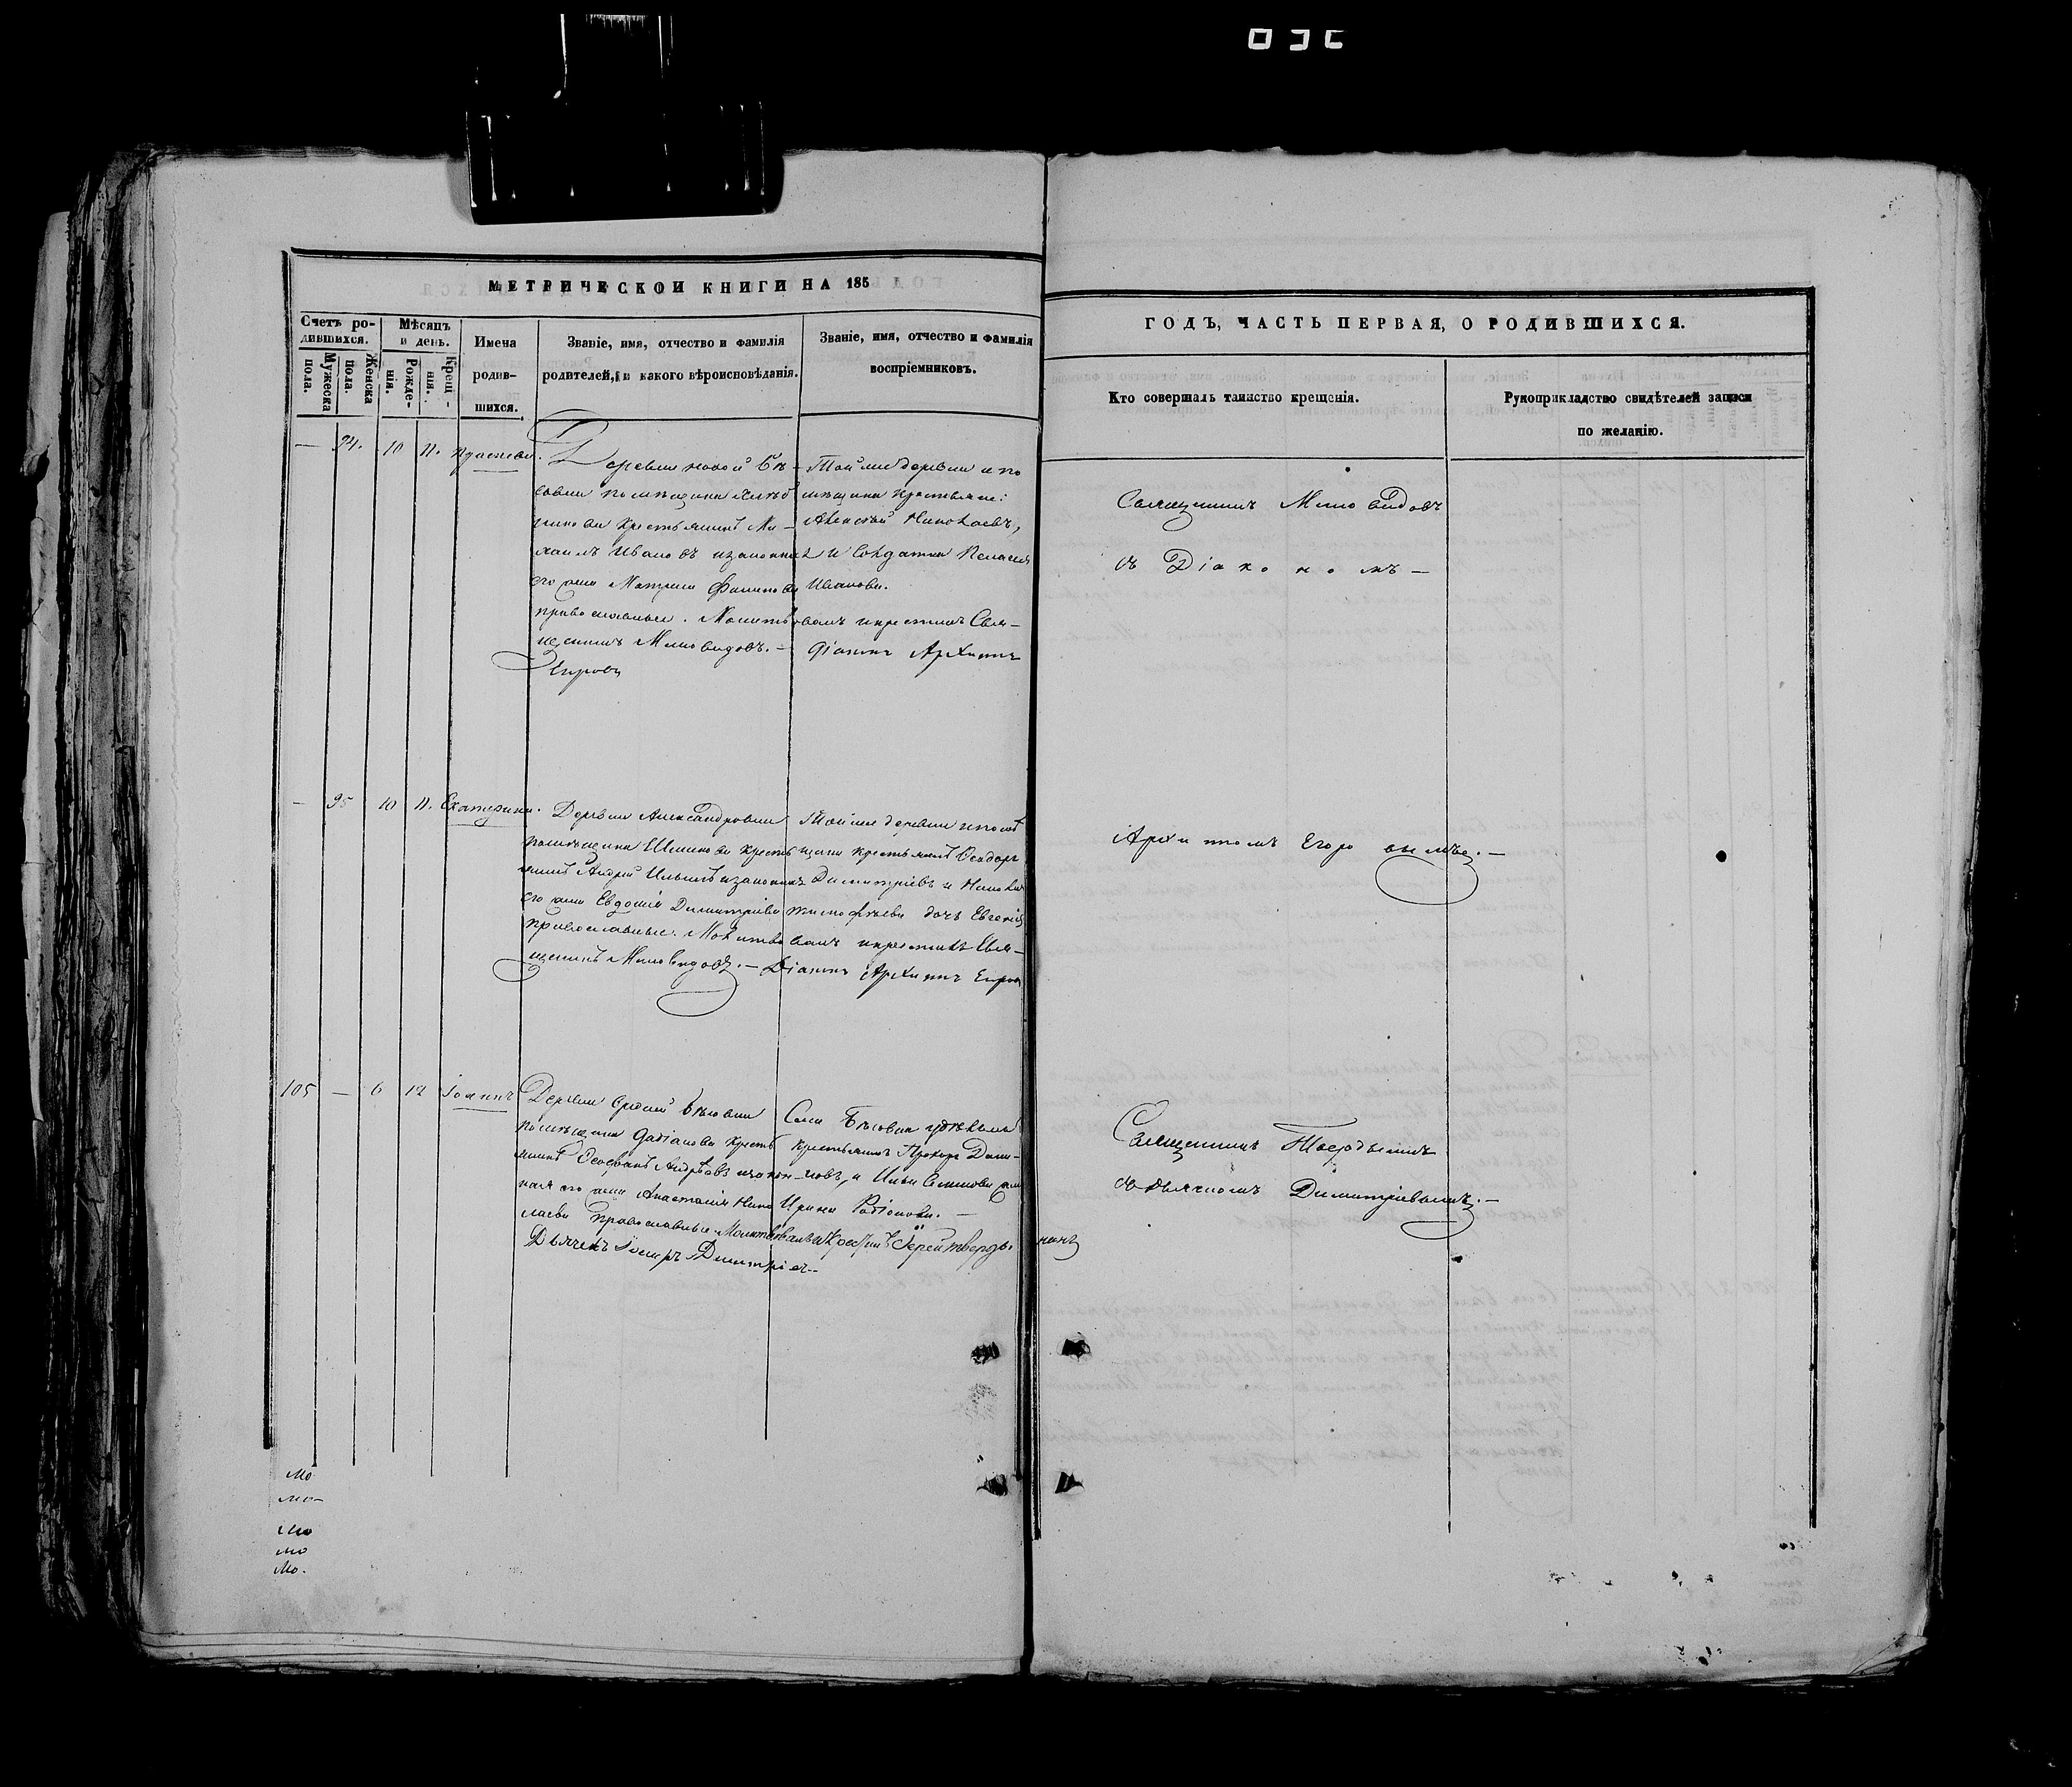 МЕТРИЧЕСКОЙ КНИГИ НА 185
ГОДЪ, ЧАСТЬ ПЕРВАЯ, О РОДИВШИХСЯ.
Счетъ ро-
дившихся.
Мужеска
пола.
Женска
пола.
Мѣсяцъ
и день.
Рожде-
нія.
Крещ-
нія.
Имена
родив-
шихся.
Званіе, имя, отчество и фамилія
родителей, и какого вѣроисповѣданія.
Званіе, имя, отчество и фамилія
воспріемниковъ.
Кто совершалъ таинство крещенія.
Рукоприкладство свидѣтелей записи
по желанію.
— 94. 10 11.
Деревни новой Бѣ-
совки помѣщика
крестьянинъ Ми-
хаилъ Ивановъ изаконная
его жена Матрена
православные. Молитв
щенникъ Миловидовъ. —
Той же деревни и по
мѣщика крестьяне:
Алексей Николаевъ,
и Солдатка Пелагея
Иванова.
вовалъ икрестилъ Свя-
Діаконъ Архиппъ
Егоровъ
Священникъ Миловидовъ
съ Діакономъ —
— 95 10 11. Екатерина.
Деревни Александровки
помѣщика крестья
нинъ Андрей Ильинъ изаконная
его жена Евдокія Димитріева
православные. Молитвовалъ икрестилъ Свя-
щенникъ Миловидовъ. — Діаконъ Архиппъ Егоровъ
Той же деревни ипомѣ
щика крестьянинъ Ѳеодоръ
Димитріевъ и Никола
Тимофѣева дочь Евгенія
Архиппомъ Егоровымъ. —
105 — 6 12 Іоаннъ
Деревни Средней Бѣсовки
помѣщика крестья
нинъ Андрѣевъ изакон-
ная его жена Анастасія Нико
лаева православные. Молитвовалъ икрестилъ Іерей Тверды-
нинъ
Дьячекъ Димитріевъ. —
Села Бѣсовки удѣльной
крестьянинъ Прохоръ Дани-
ловъ, и Ильи Семенова жена
Ирина Родіонова. —
Священникъ Твердынинъ
съ дьячкомъ Димитріевымъ. —
мо
мо-
мо
мо
мо.